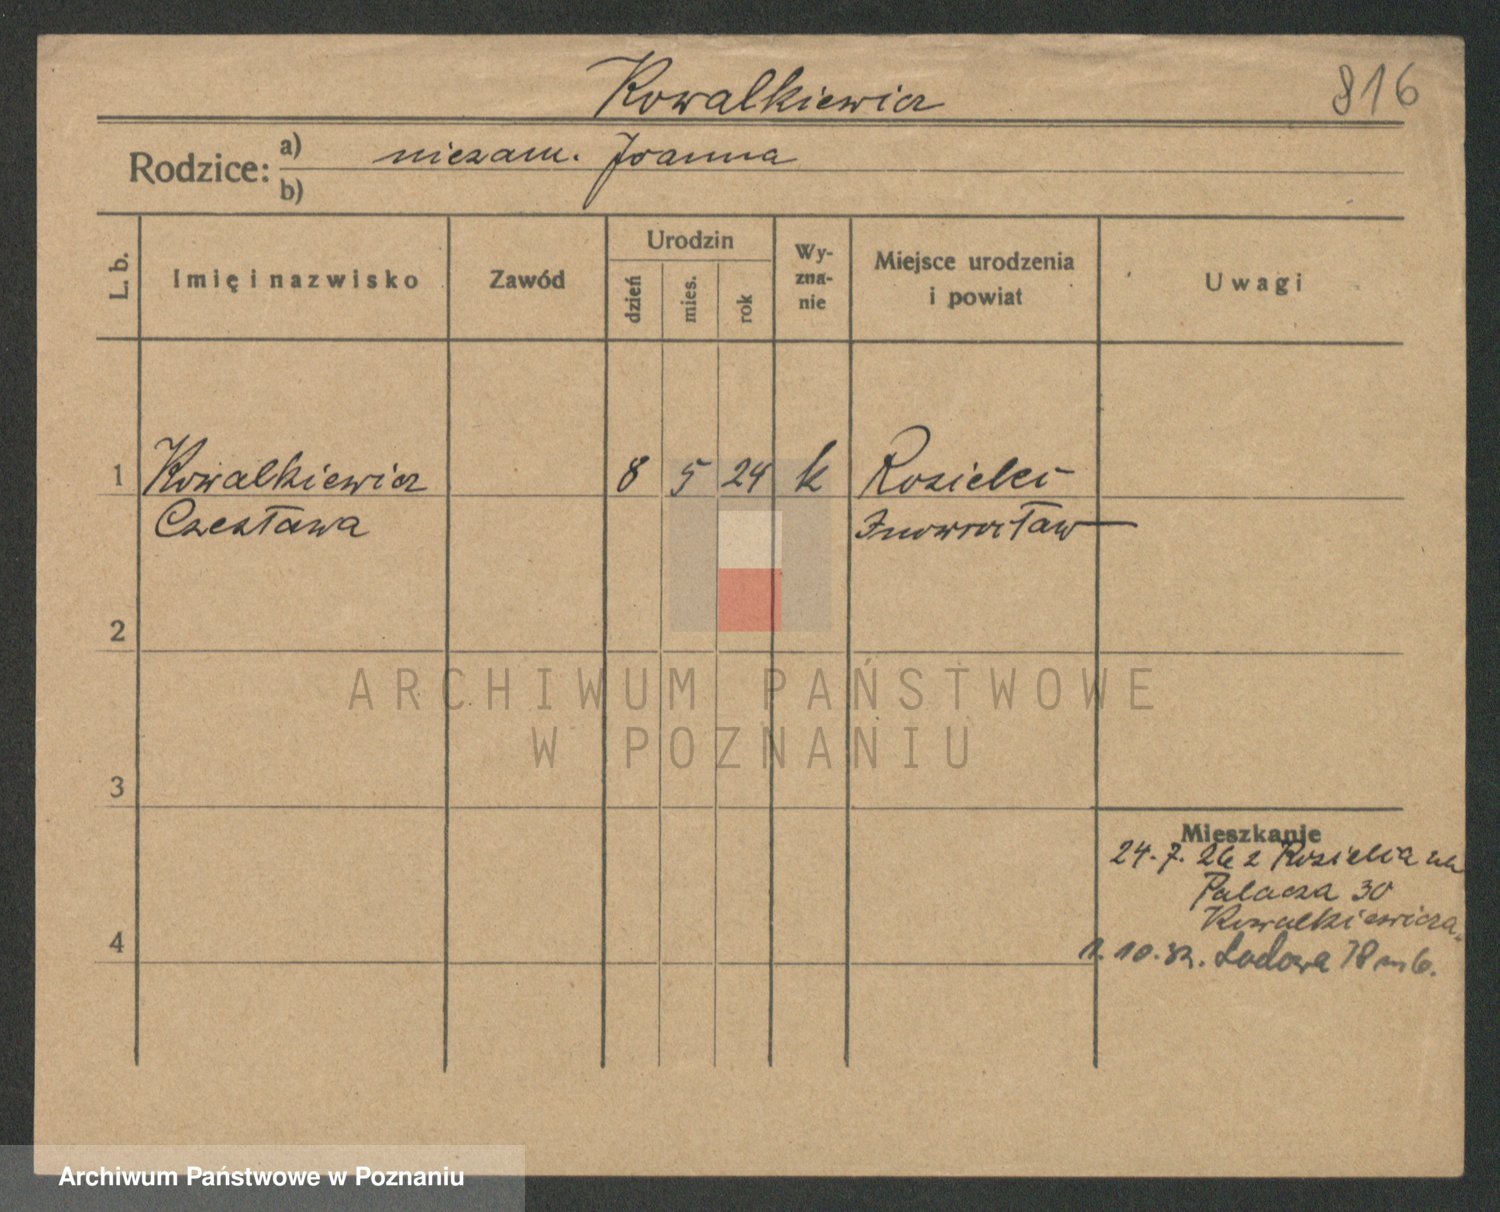 Kowalkiewicz
816
Rodzice: a) niezam. Joanna
b)
L. b.
Imię i nazwisko
Zawód
Urodzin
dzień
mies.
rok
Wy-
zna-
nie
Miejsce urodzenia
i powiat
Uwagi
1 Kowalkiewicz 8 5 24 k
Czesława Inowrocław
2
ARCHIWUM PAŃSTWOWE
W POZNANIU
3
Mieszkanie
24. 7. 26 z
Palacza 30
Kowalkiewicza
4
1. 10. 32. 78 m 6.
Archiwum Państwowe w Poznaniu